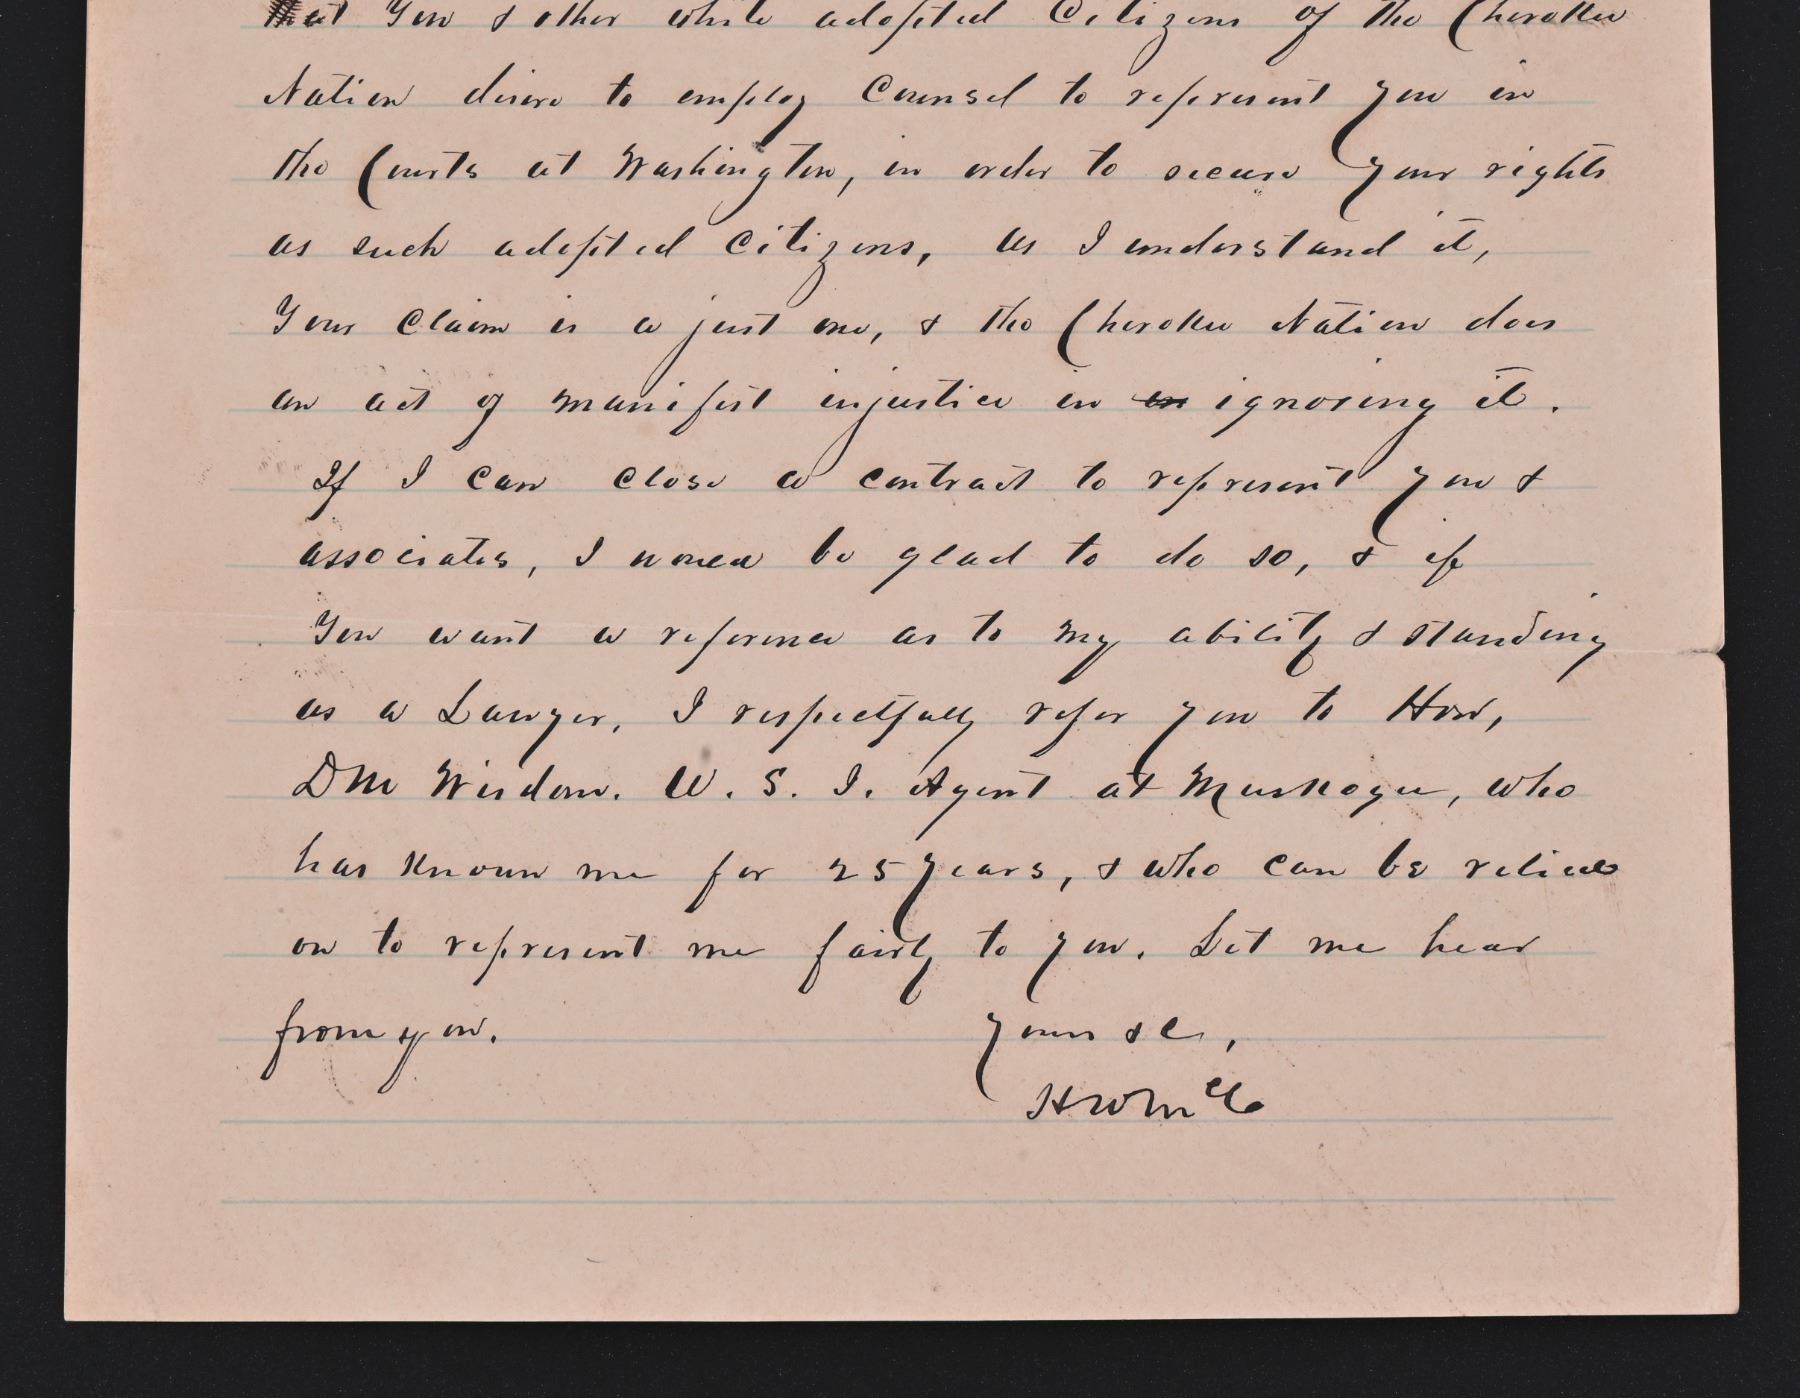 that You & other white adopted Citizens of the Cherokee
Nation desire to employ Counsel to represent you in
the Courts at Washington, in order to secure your rights
as such adopted Citizens, As I understand it,
Your Claim is a just one, & the Cherokee Nation does
an act of manifest injustice in in ignoring it.
If I can close a contract to represent you &
associates, I would be glad to do so, & if
You want a reference as to my ability & standing
as a Lawyer, I respectfully refer you to Hon,
DM Wisdom. U. S. I. Agent at Muskogee, who
has known me for 25 years, & who can be relied
on to represent me fairly to you. Let me hear
from you. Yours &c,